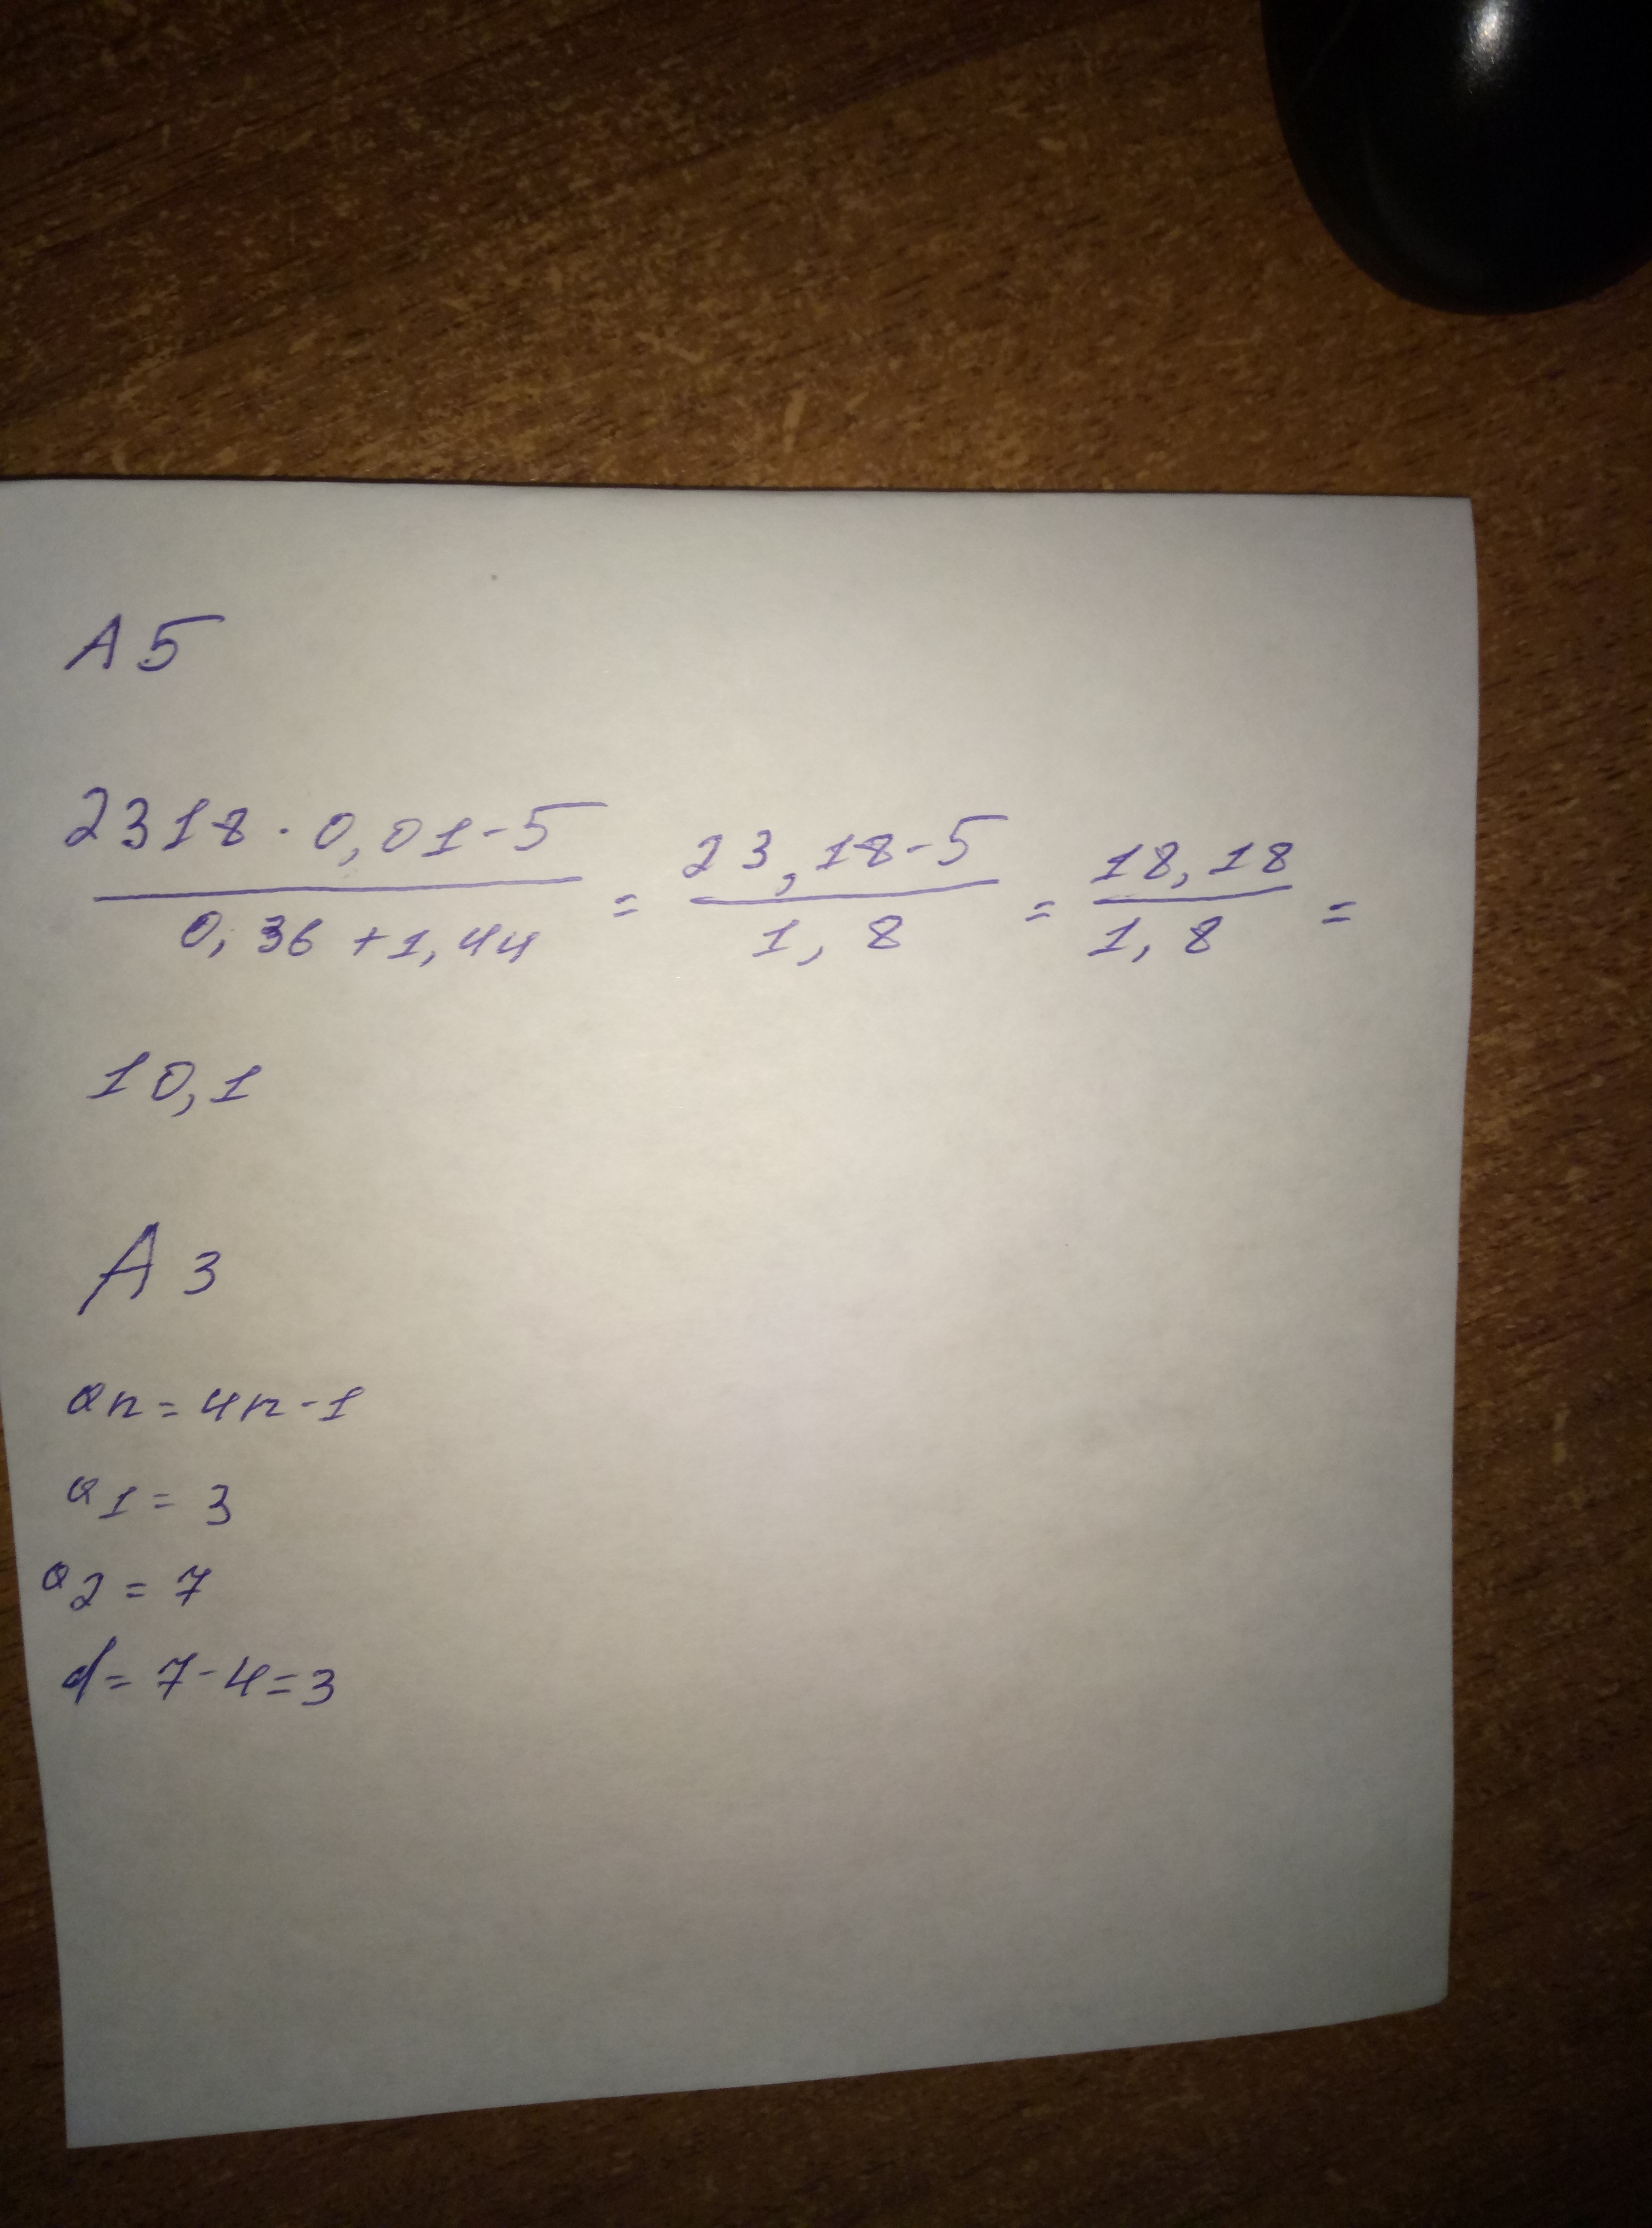 А5
2318 · 0,01 - 5 / 0,36 + 1,44 = 23,18 - 5 / 1,8 = 18,18 / 1,8 =
10,1
А3
an = 4n - 1
a1 = 3
a2 = 7
d = 7 - 4 = 3